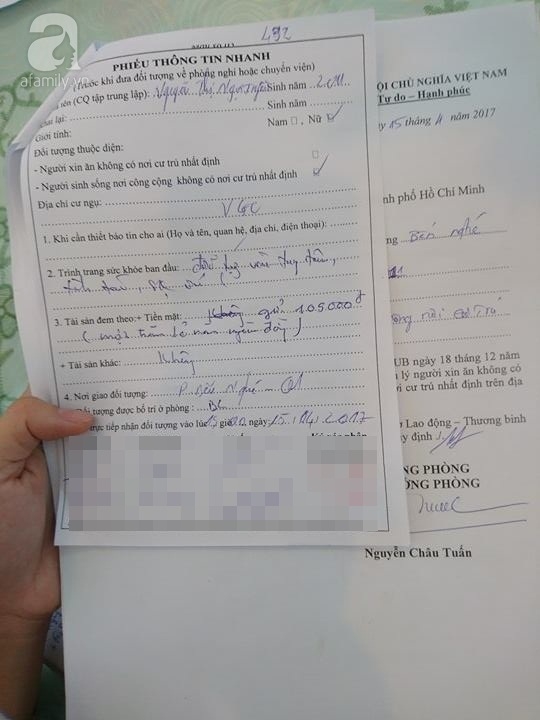 afamily.vn
492
PHIẾU THÔNG TIN NHANH
(Trước khi đưa đối tượng về phòng nghỉ hoặc chuyển viện)
tên (CQ tập trung lập): Nguyễn Thị Ngọc Sinh năm 2011
khai lại: Sinh năm
Giới tính: Nam □, Nữ ☑
Đối tượng thuộc diện:
- Người xin ăn không có nơi cư trú nhất định □
- Người sinh sống nơi công cộng không có nơi cư trú nhất định ☑
Địa chỉ cư ngụ: VGC
1. Khi cần thiết báo tin cho ai (Họ và tên, quan hệ, địa chỉ, điện thoại):
2. Trình trang sức khỏe ban đầu:
3. Tài sản đem theo:+ Tiền mặt: gửi 105000đ
(một trăm lẻ năm ngàn đồng)
+ Tài sản khác: Không
4. Nơi giao đối tượng: P Bến Nghé - Q1
Đối tượng được bố trí ở phòng: B
trực tiếp nhận đối tượng vào lúc giờ ngày: 15/04/2017
ỘI CHỦ NGHĨA VIỆT NAM
Tự do – Hạnh phúc
y 15 tháng 4 năm 2017
nh phố Hồ Chí Minh
ng Bến Nghé
UB ngày 18 tháng 12 năm
lý người xin ăn không có
i cư trú nhất định trên địa
ở Lao động – Thương binh
y định
NG PHÒNG
ỞNG PHÒNG
Nguyễn Châu Tuấn